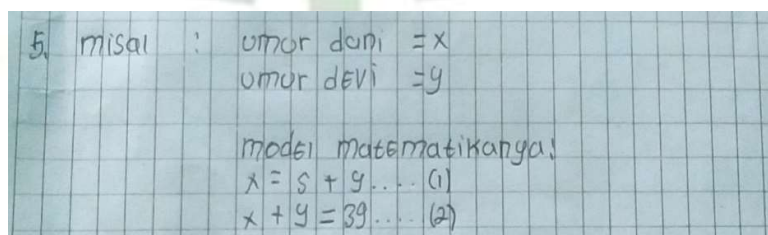 5. misal : umur dani = x
umur dEVi = y
modEl matEmatikanya:
x = 5 + y .... (1)
x + y = 39 .... (2)